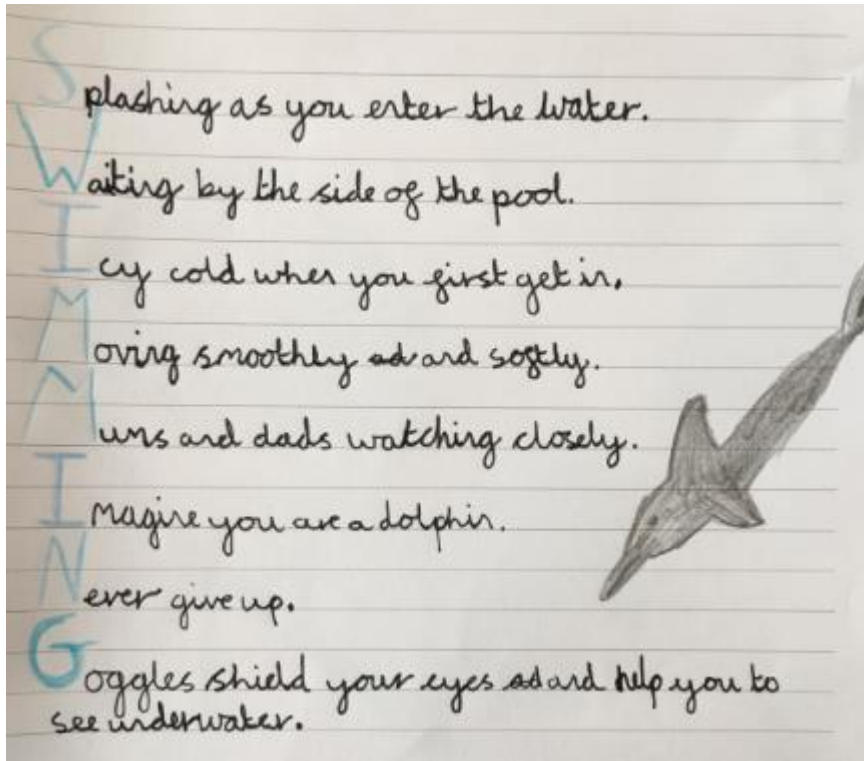 Splashing as you enter the water.
Waiting by the side of the pool.
Icy cold when you first get in.
Moving smoothly ad and softly.
Mums and dads watching closely.
Imagine you are a dolphin.
Never give up.
Goggles shield your eyes ad and help you to
see underwater.